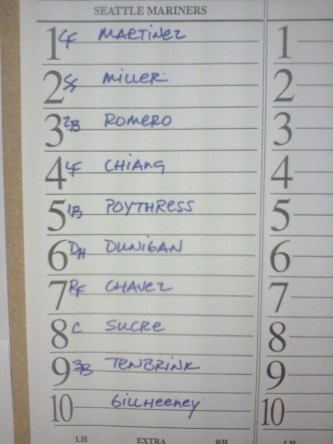 SEATTLE MARINERS
1 CF MARTINEZ 1
2 SS MILLER 2
3 2B ROMERO 3
4 LF CHIANG 4
5 1B POYTHRESS 5
6 DH DUNIGAN 6
7 RF CHAVEZ 7
8 C SUCRE 8
9 3B TENBRINK 9
10 GILLHEENEY 10
LH EXTRA RH LH